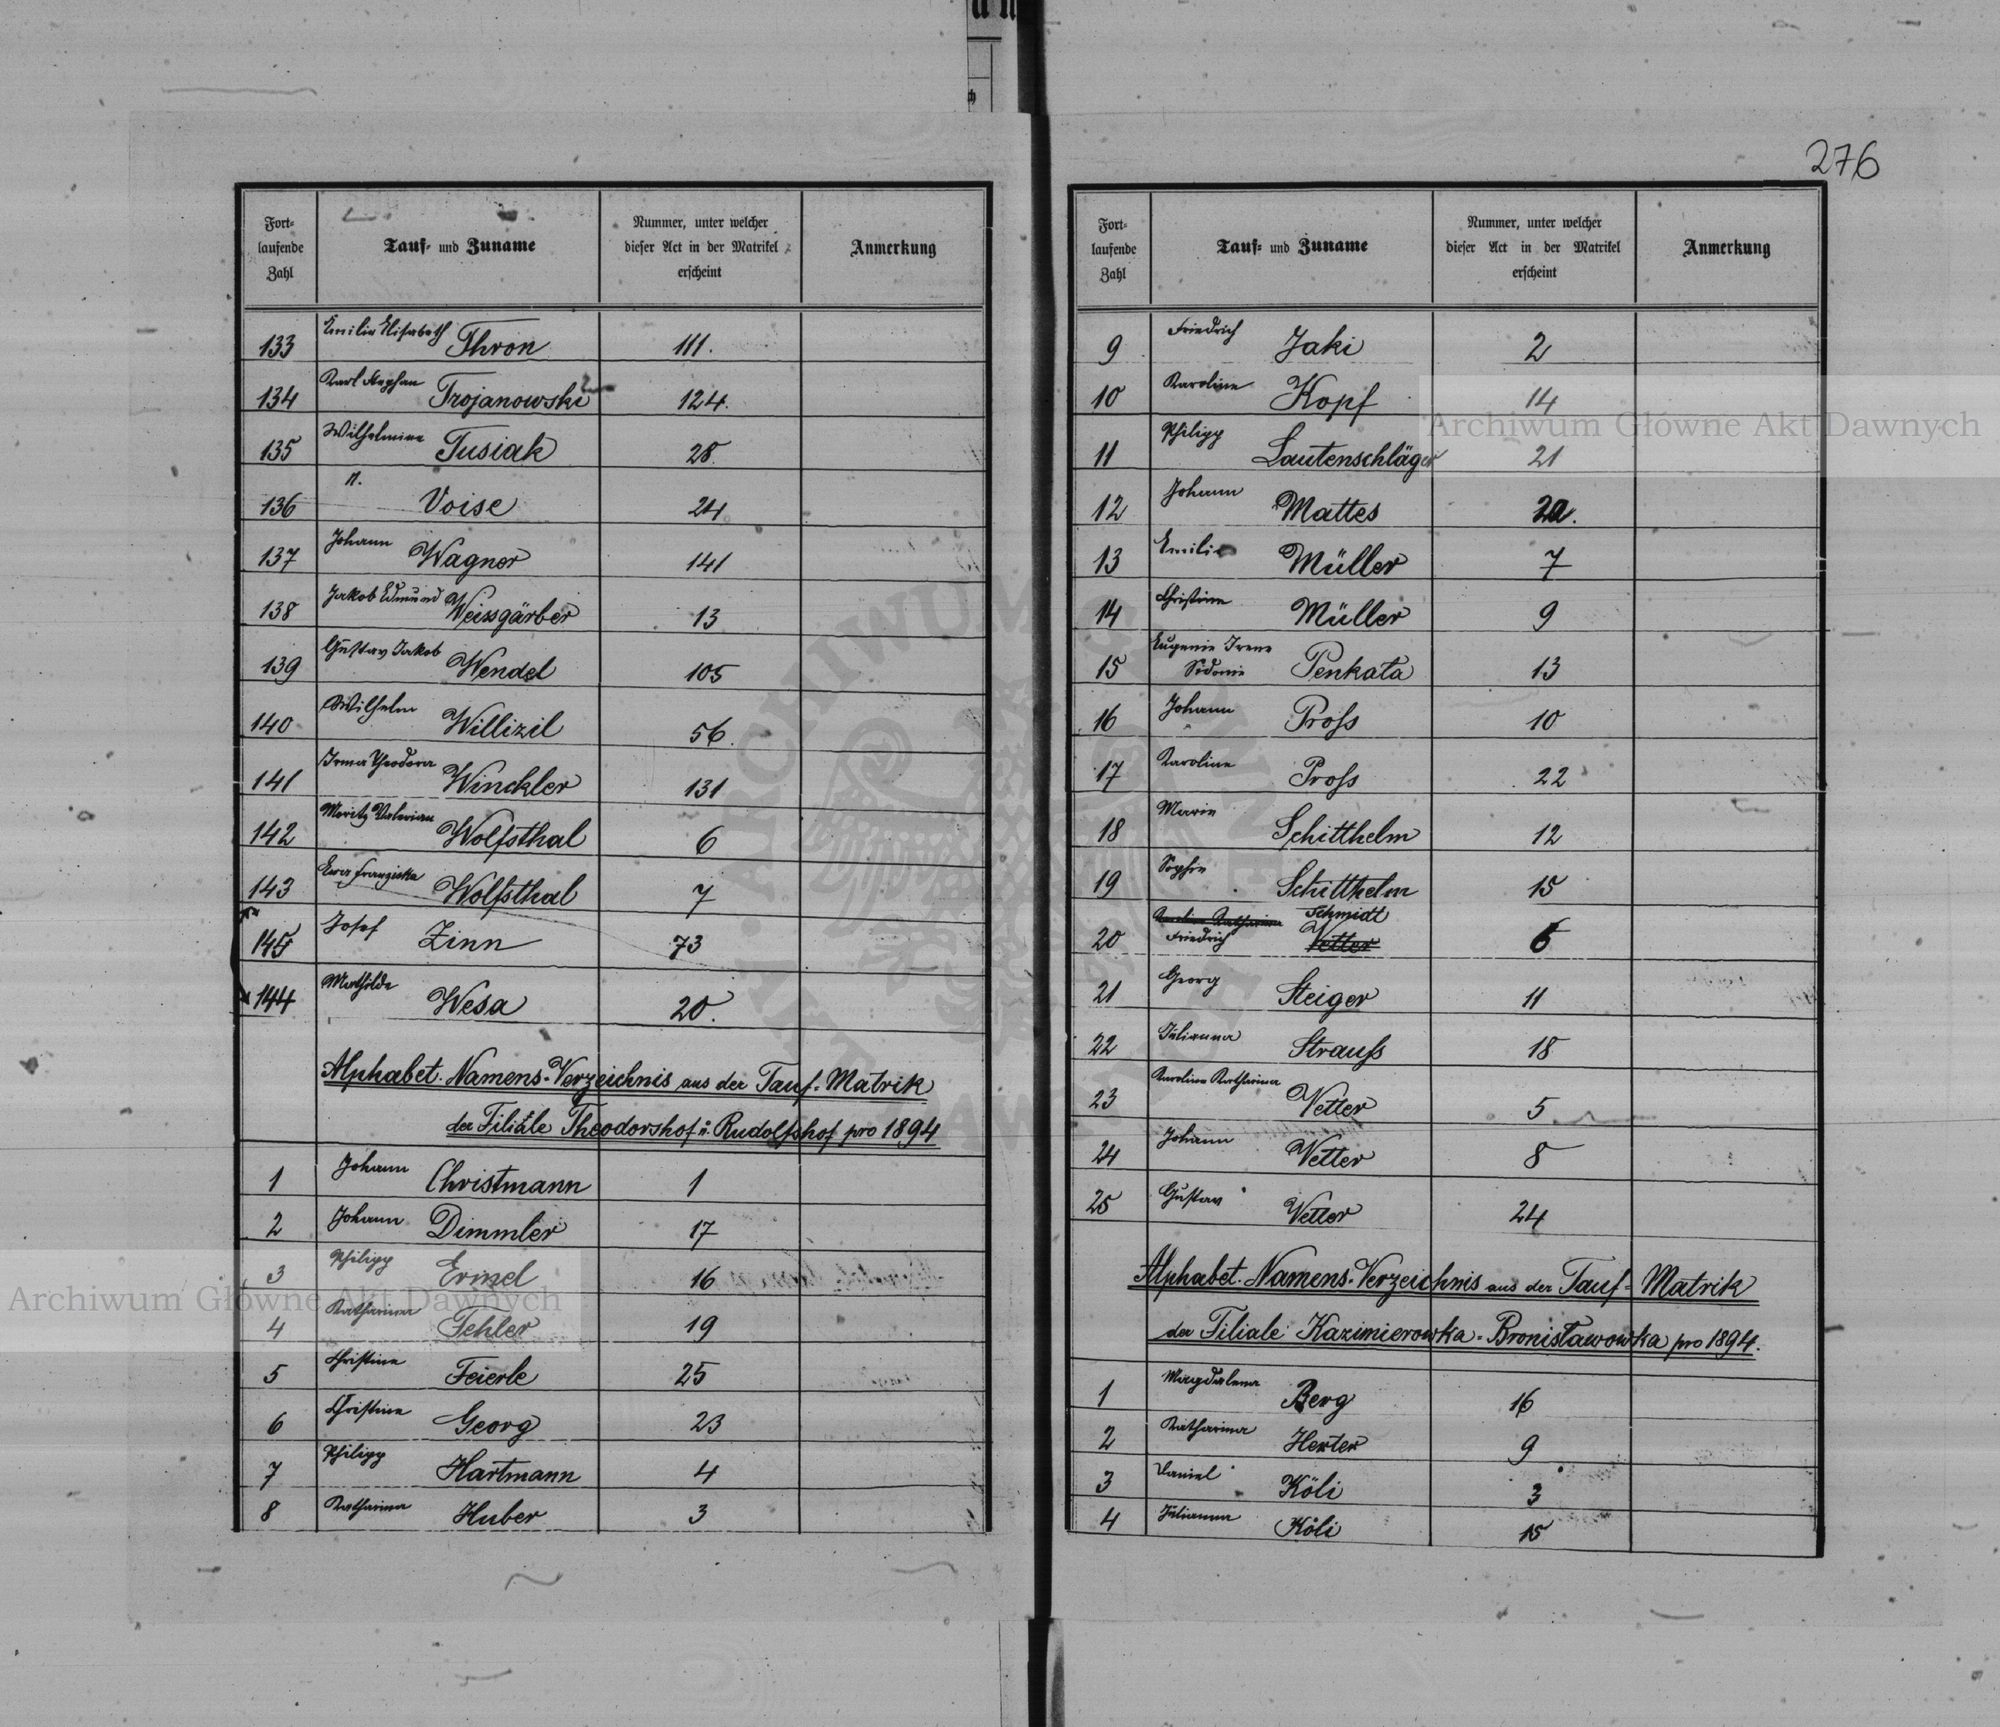 276
Fort-
laufende
Zahl
Tauf- und Zuname
Nummer, unter welcher
dieser Act in der Matrikel
erscheint
Anmerkung
133 Emilie Elisabeth Thron 111.
134 Karl Stephan Trojanowski 124.
135 Wilhelmine Tusiak 28.
136 N. Voise 24
137 Johann Wagner 141
138 Jakob Edmund Weissgärber 13
139 Gustav Jakob Wendel 105
140 Wilhelm Willizil 56.
141 Irma Theodora Winckler 131
142 Moritz Valerian Wolfsthal 6
143 Ewa Franziska Wolfsthal 7
145 Josef Zinn 73
144 Mathilde Wesa 20.
Alphabet. Namens-Verzeichnis aus der Tauf-Matrik
der Filiale Theodorshof u. Rudolfshof pro 1894
1 Johann Christmann 1
2 Johann Dimmler 17
3 Philipp Ermel 16
4 Katharina Fehler 19
5 Christine Feierle 25
6 Christine Georg 23
7 Philipp Hartmann 4
8 Katharina Huber 3
Fort-
laufende
Zahl
Tauf- und Zuname
Nummer, unter welcher
dieser Act in der Matrikel
erscheint
Anmerkung
9 Friedrich Jaki 2
10 Karoline Kopf 14
11 Philipp Lautenschläger 21
12 Johann Mattes 20.
13 Emilie Müller 7
14 Christine Müller 9
15 Eugenie Irene
Sidonie Penkata 13
16 Johann Pross 10
17 Karoline Pross 22
18 Marie Schitthelm 12
19 Sophie Schitthelm 15
Karoline Katharina Schmidt
20 Friedrich Vetter 6
21 Georg Steiger 11
22 Julianna Strauss 18
23 Karoline Katharina Vetter 5
24 Johann Vetter 8
25 Gustav Vetter 24
Alphabet. Namens-Verzeichnis aus der Tauf-Matrik
der Filiale Kazimierowka-Bronisławowka pro 1894.
1 Magdalena Berg 16
2 Katharina Herter 9
3 Daniel Köli 3
4 Julianna Köli 15
Archiwum Główne Akt Dawnych
Archiwum Główne Akt Dawnych